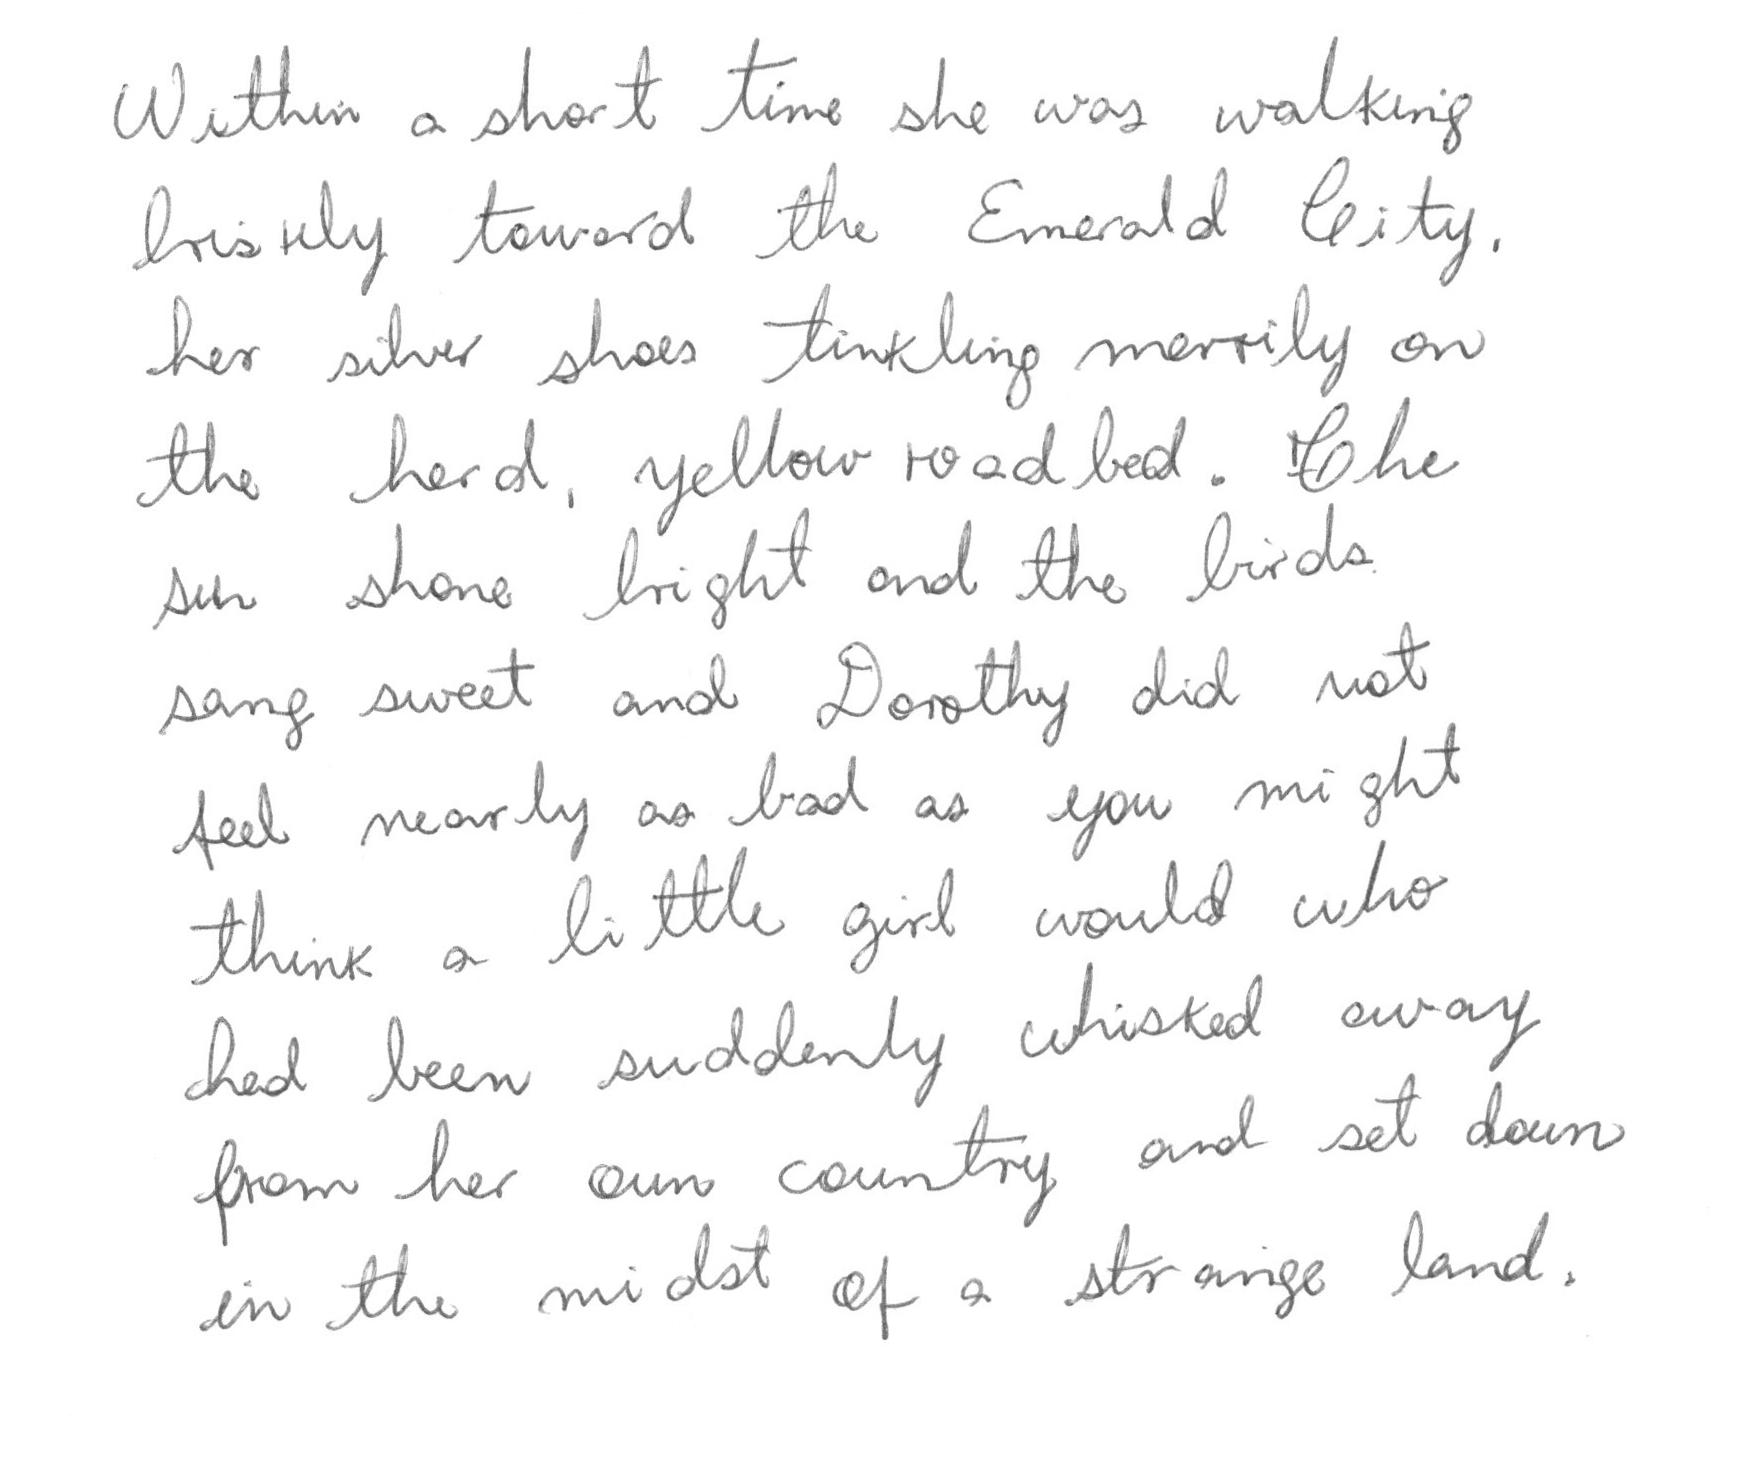 Within a short time she was walking
briskly toward the Emerald City,
her silver shoes tinkling merrily on
the hard, yellow roadbed. The
sun shone bright and the birds
sang sweet and Dorothy did not
feel nearly as bad as you might
think a little girl would who
had been suddenly whisked away
from her own country and set down
in the midst of a strange land.